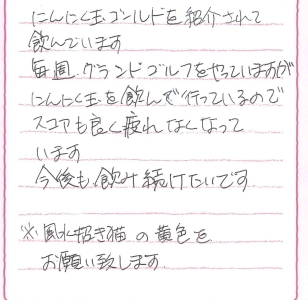 にんにく玉ゴールドを紹介されて
飲んでいます
毎週、グランドゴルフをやっていますが
にんにく玉を飲んで行っているので
スコアも良く疲れなくなって
います
今後も飲み続けたいです
※風水招き猫の黄色を
お願い致します